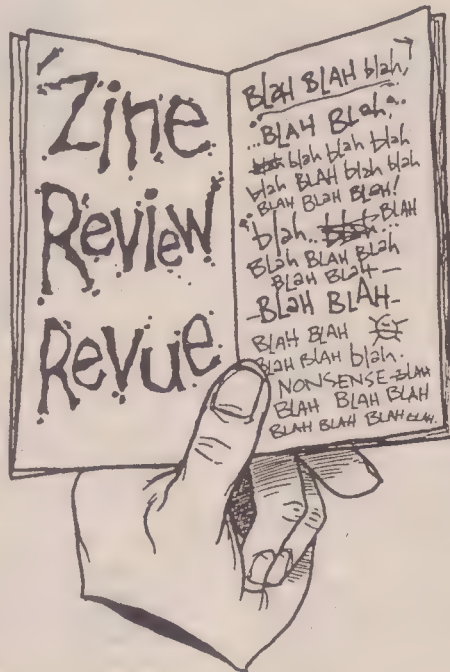 Zine
Review
Revue
BLAH BLAH blah,
...BLAH BLah,..
blah blah blah
blah BLAH blah blah
BLAH BLAH BLaH!
blah.. BLAH
BLaH BLAH BLah
BLAH BLAH—
-BLaH BLAH-
BLAH BLAH
BLAH BLAH blah.
NONSENSE-BLAH
BLAH BLAH BLAH
BLAH BLAH BLAH BLAH.